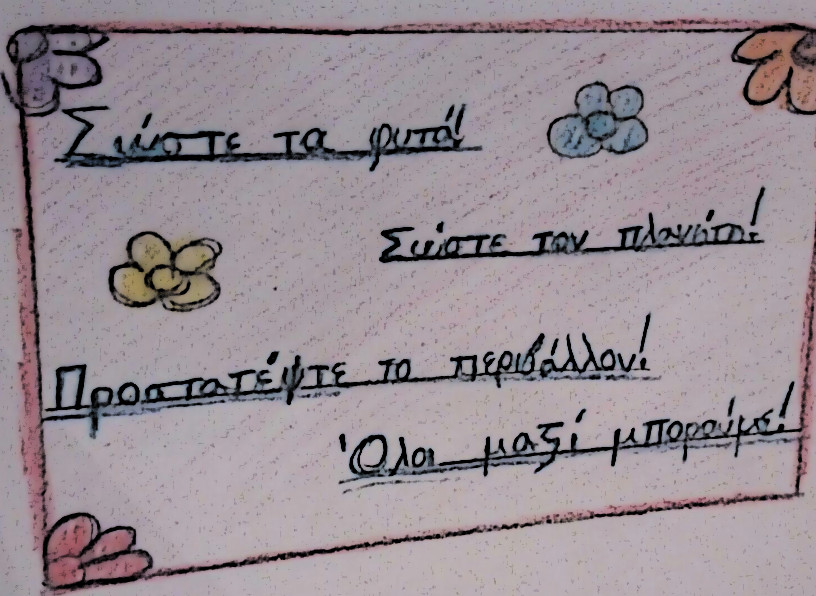 Σώστε τα φυτά!
Σώστε τον πλανήτη!
Προστατέψτε το περιβάλλον!
Όλοι μαζί μπορούμε!